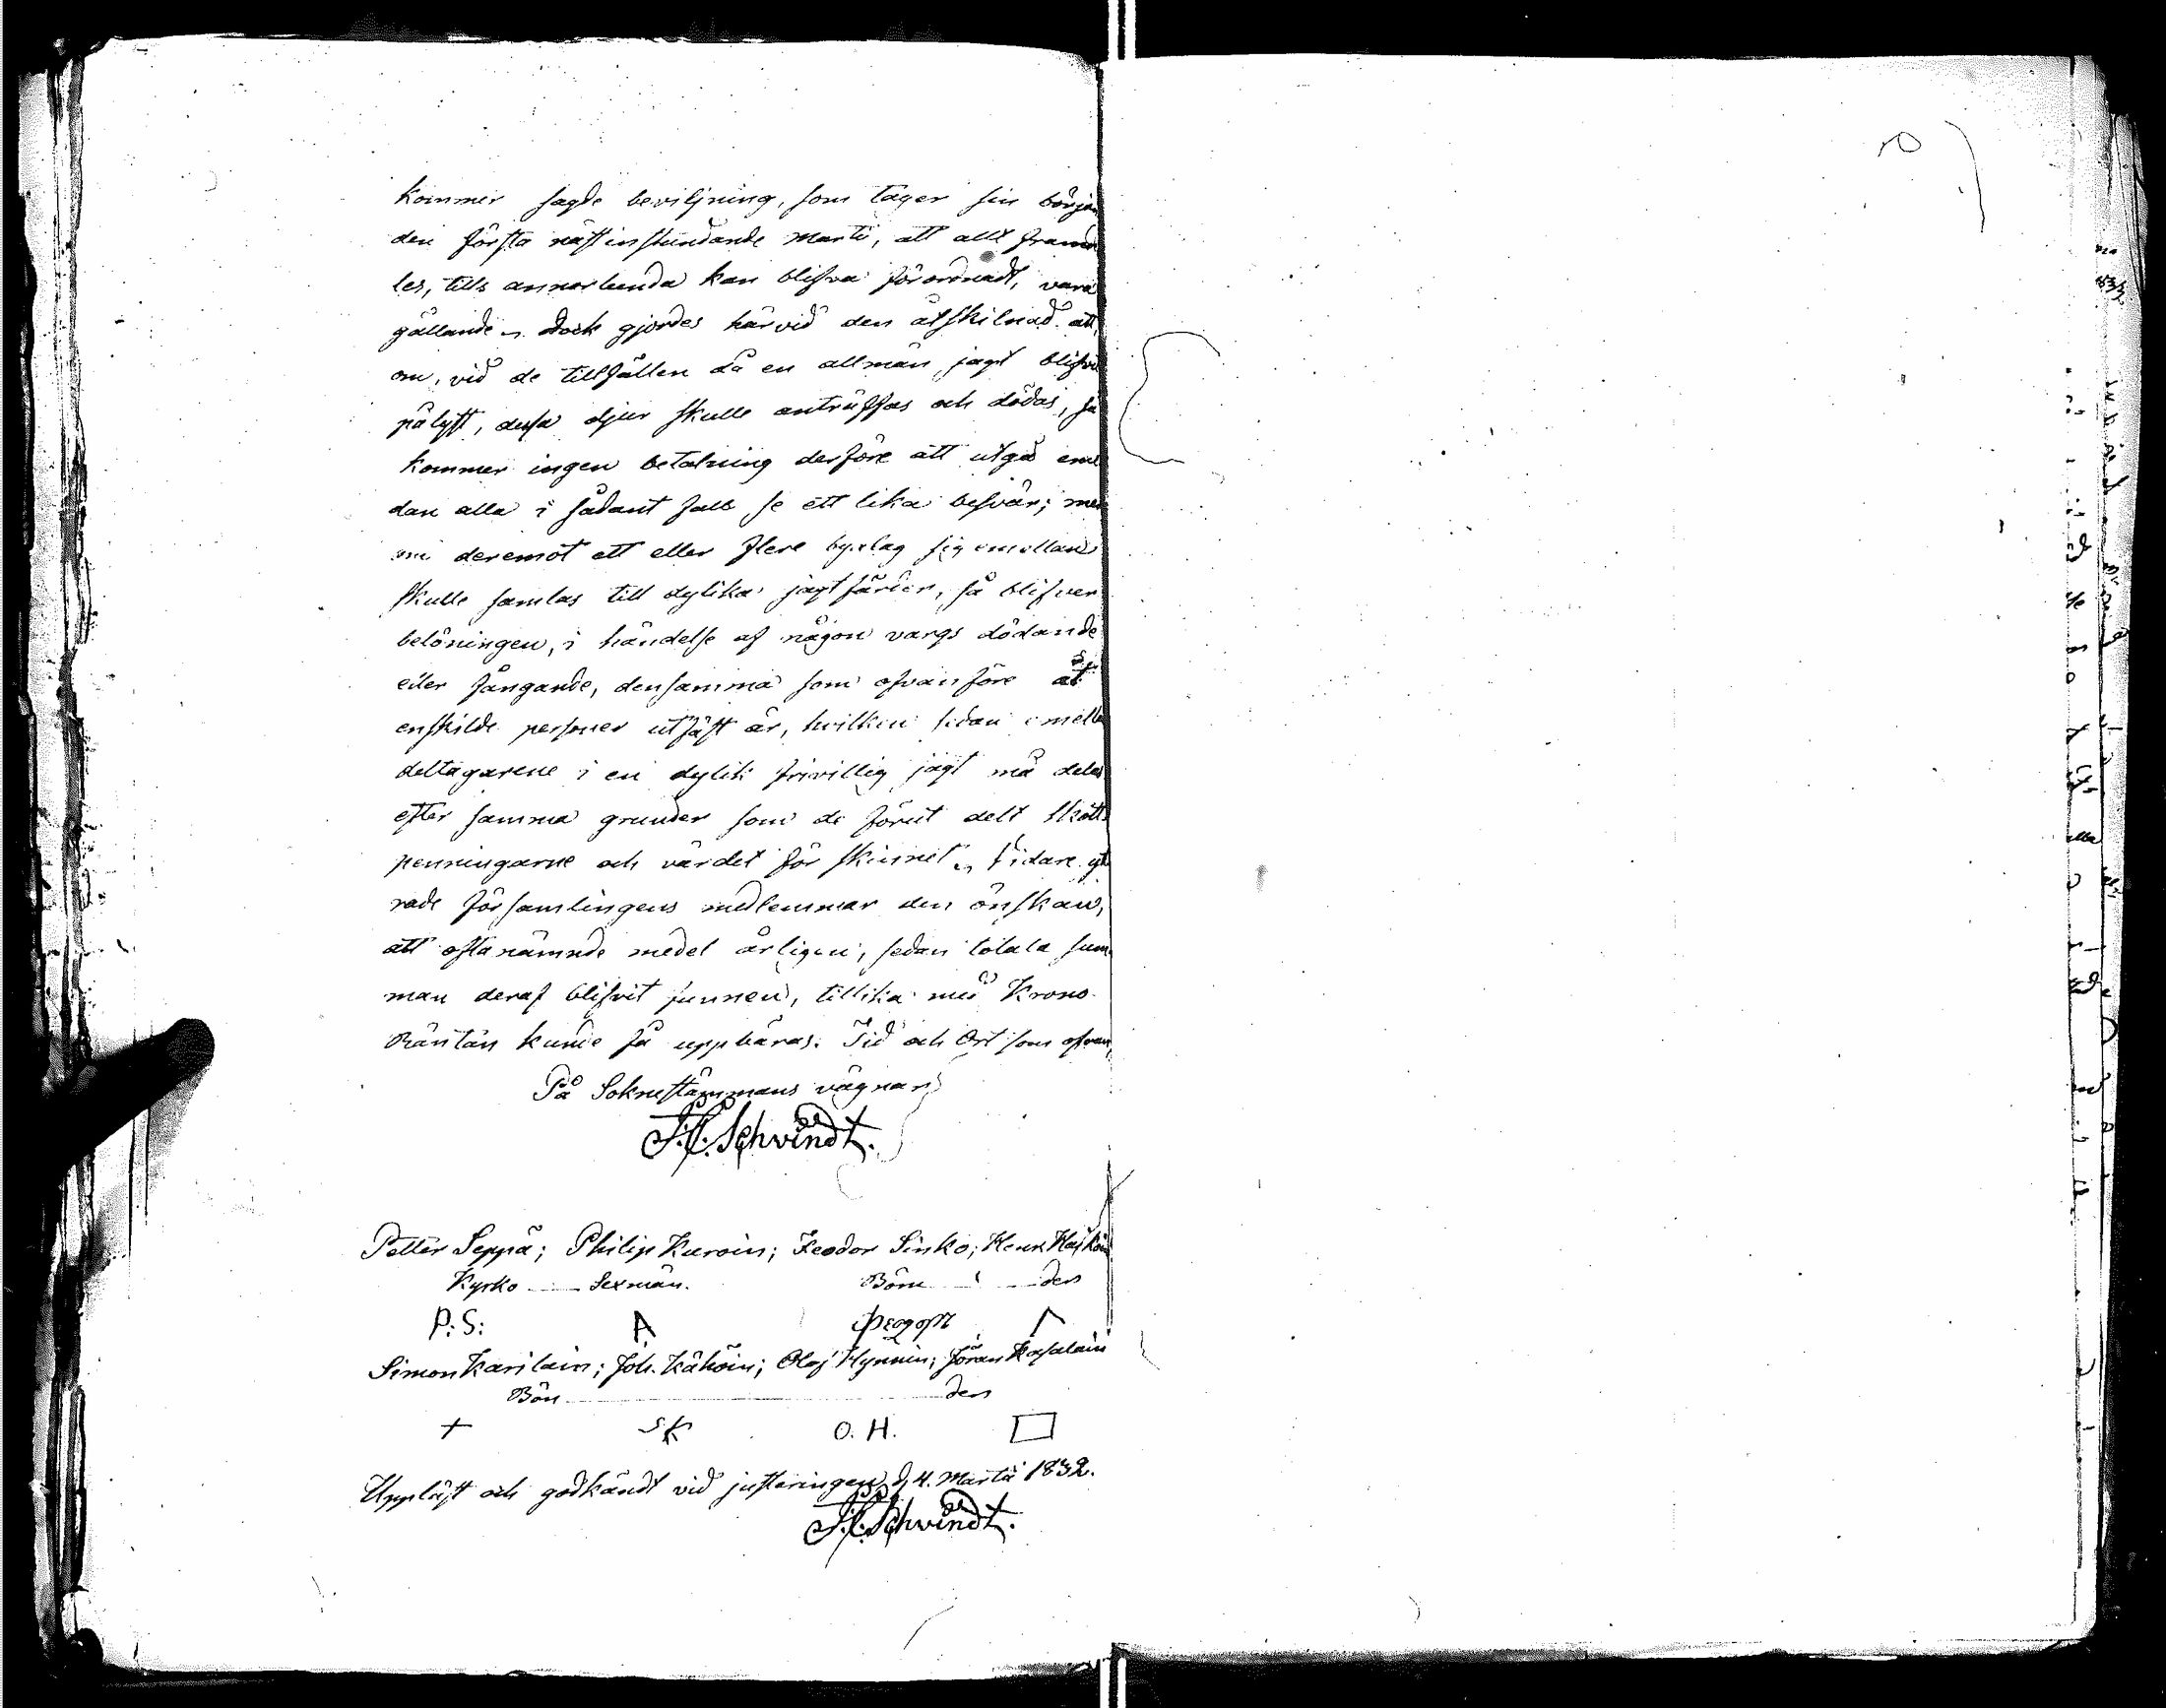 kommer sagde beviljning, som tager sin början
den första nästinstundande Martii, att allt framde
les, tills annorlunda kan blifva förordnadt, vara
gällande. Dock gjordes härvid den åtskilnad att,
om, vid de tillfällen då en allmän jagt blifvit
pålyst, dessa djur skulle anträffas och dödas, så
kommer ingen betalning derföre att utgå eme
dan alla i sådant fall se ett lika besvär; men
om deremot ett eller flere bylag sig emellan
skulle samlas till dylika jagtfärder, så blifver
belöningen, i händelse af någon vargs dödande
eller fångande, densamma som ofvanföre åt
enskilde personer utfäst är, hvilken sedan emellan
deltagarene i en dylik frivillig jagt må delas
efter samma grunder som de förut delt skott
penningarne och värdet för skinnet. Vidare ytt
rade församlingens medlemmar den önskan,
att oftanämnde medel årligen, sedan totala sum
man deraf blifvit funnen, tillika med Krono
Räntan kunde få uppbäras. Tid och Ort som ofvan,
På Soknestämmans vägnar
Schvindt.
Petter Seppä; Philip Kuroin; Feodor Sinko; Henr.
Kyrko Sexmän. Bön der
P: S: A Феодоръ Λ
Simon Karilain; Joh. Kähöin; Olof Hynnin; Jöran Kasalain
Bön der
+ SK O. H. □
Uppläst och godkändt vid justeringen d. 4. Martii 1832.
Schvindt.